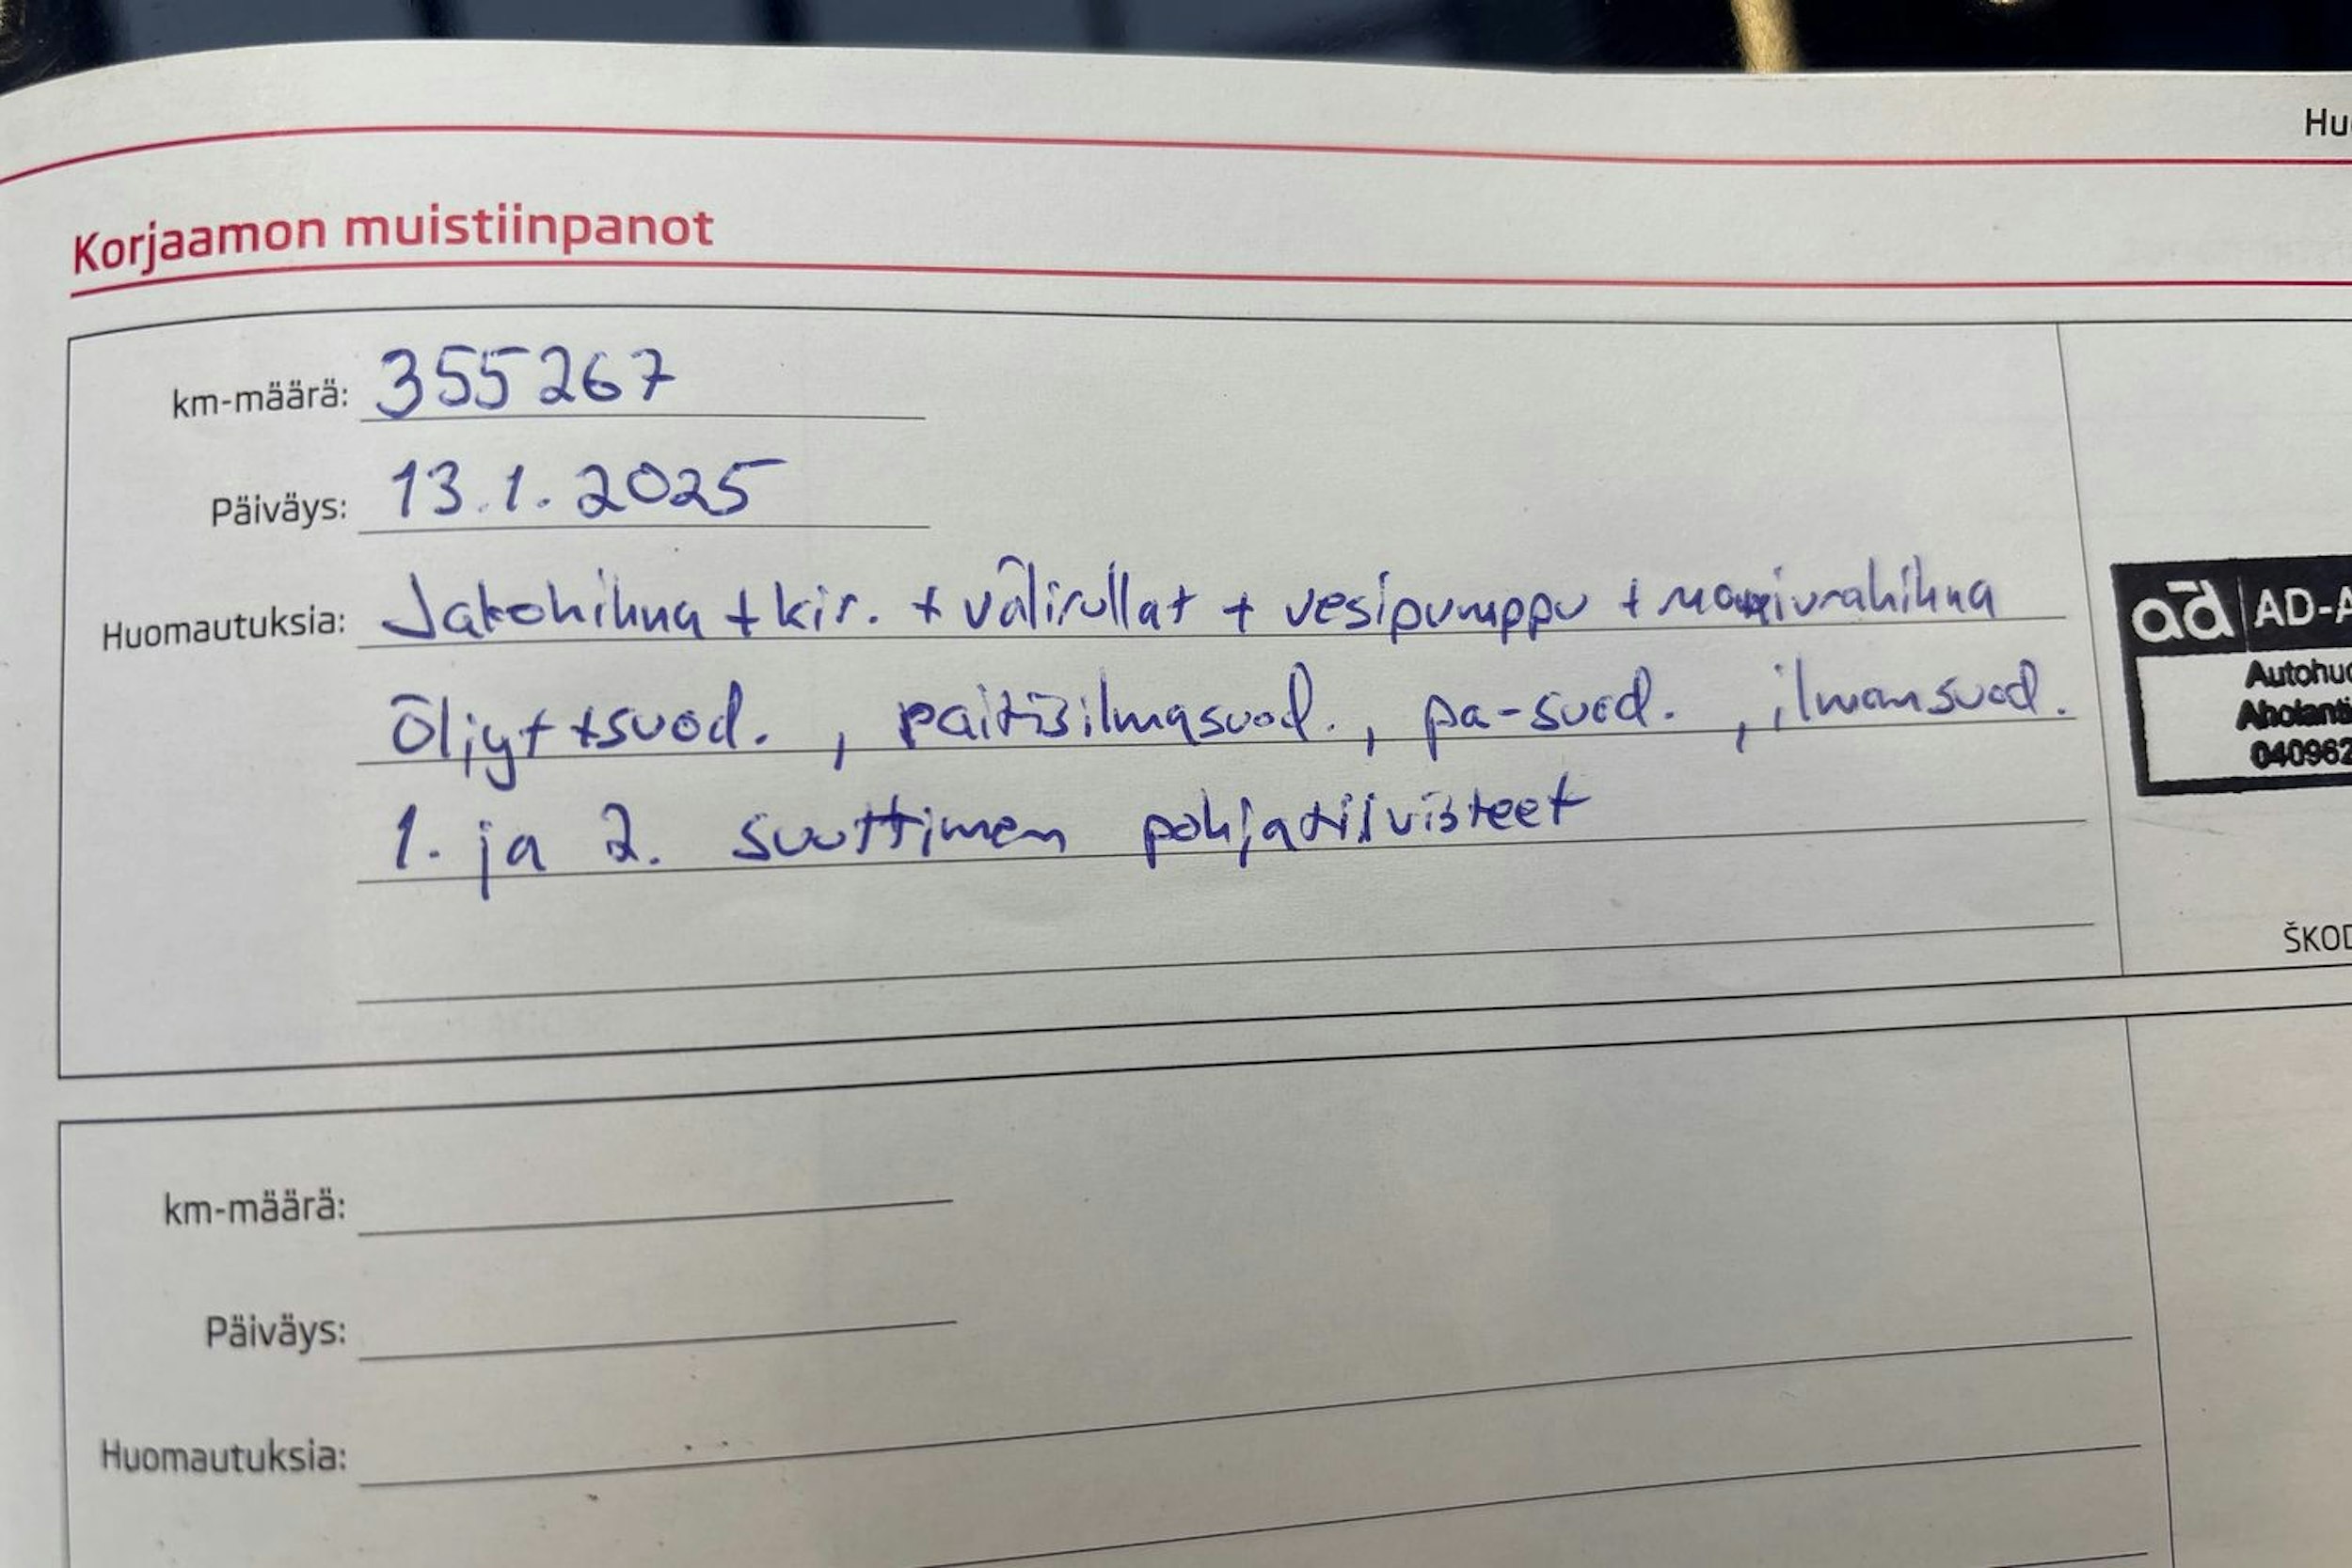 Hu
Korjaamon muistiinpanot
km-määrä: 355267
Päiväys: 13.1.2025
Huomautuksia: Jakohihna + kir. + välirullat + vesipumppu + moniurahihna
öljyt + suod. , raitisilmasuod. , pa-suod. , ilmansuod.
1. ja 2. suuttimen pohjatiivisteet
ad AD-A
Autohuo
Aholanti
040962
ŠKOD
km-määrä:
Päiväys:
Huomautuksia: